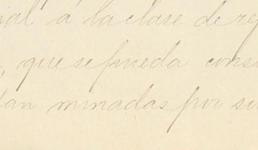 ial á la clase de re
, que se pueda cons
tan minadas por su